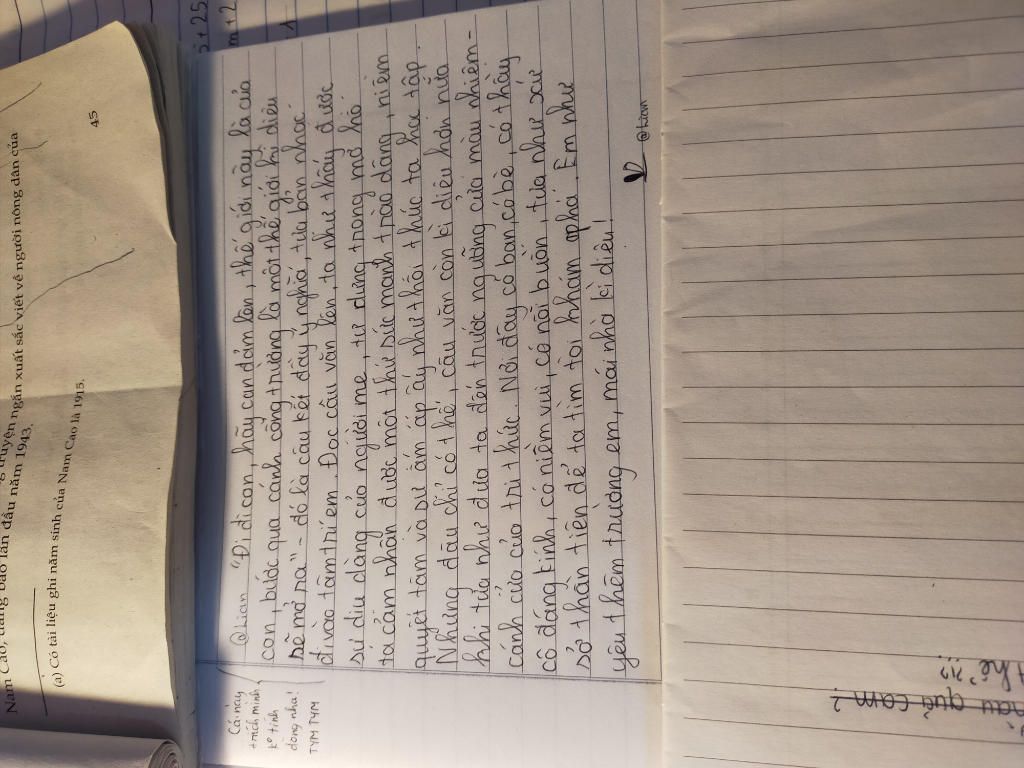 Nam Cao, đăng báo lần đầu năm 1943.
truyện ngắn xuất sắc viết về người nông dân của
(a) Có tài liệu ghi năm sinh của Nam Cao là 1915.
45
Cái này
trích mình
k° tính
dòng nha!
TYM TYM
@lian "Đi đi con, hãy can đảm lên, thế giới này là của
con, bước qua cánh cổng trường là một thế giới kì diệu
sẽ mở ra" - đó là câu kết đầy ý nghĩa, tựa bản nhạc
đi vào tâm trí em. Đọc câu văn lên, ta như thấy được
sự dịu dàng của người mẹ, tự dưng trong mơ hồ
ta cảm nhận được một thứ sức mạnh trào dâng, niềm
quyết tâm và sự ấm áp ấy như thôi thúc ta học tập.
Nhưng đâu chỉ có thế, câu văn còn kì diệu hơn nữa
khi tựa như đưa ta đến trước ngưỡng cửa màu nhiệm -
cánh cửa của tri thức. Nơi đây có bạn, có bè, có thầy
cô đáng kính, có niềm vui, có nỗi buồn, tựa như xứ
sở thần tiên để ta tìm tòi khám phá. Em như
yêu thêm trường em, mái nhà kì diệu!
@lian
màu quả cam?
thế ?!?